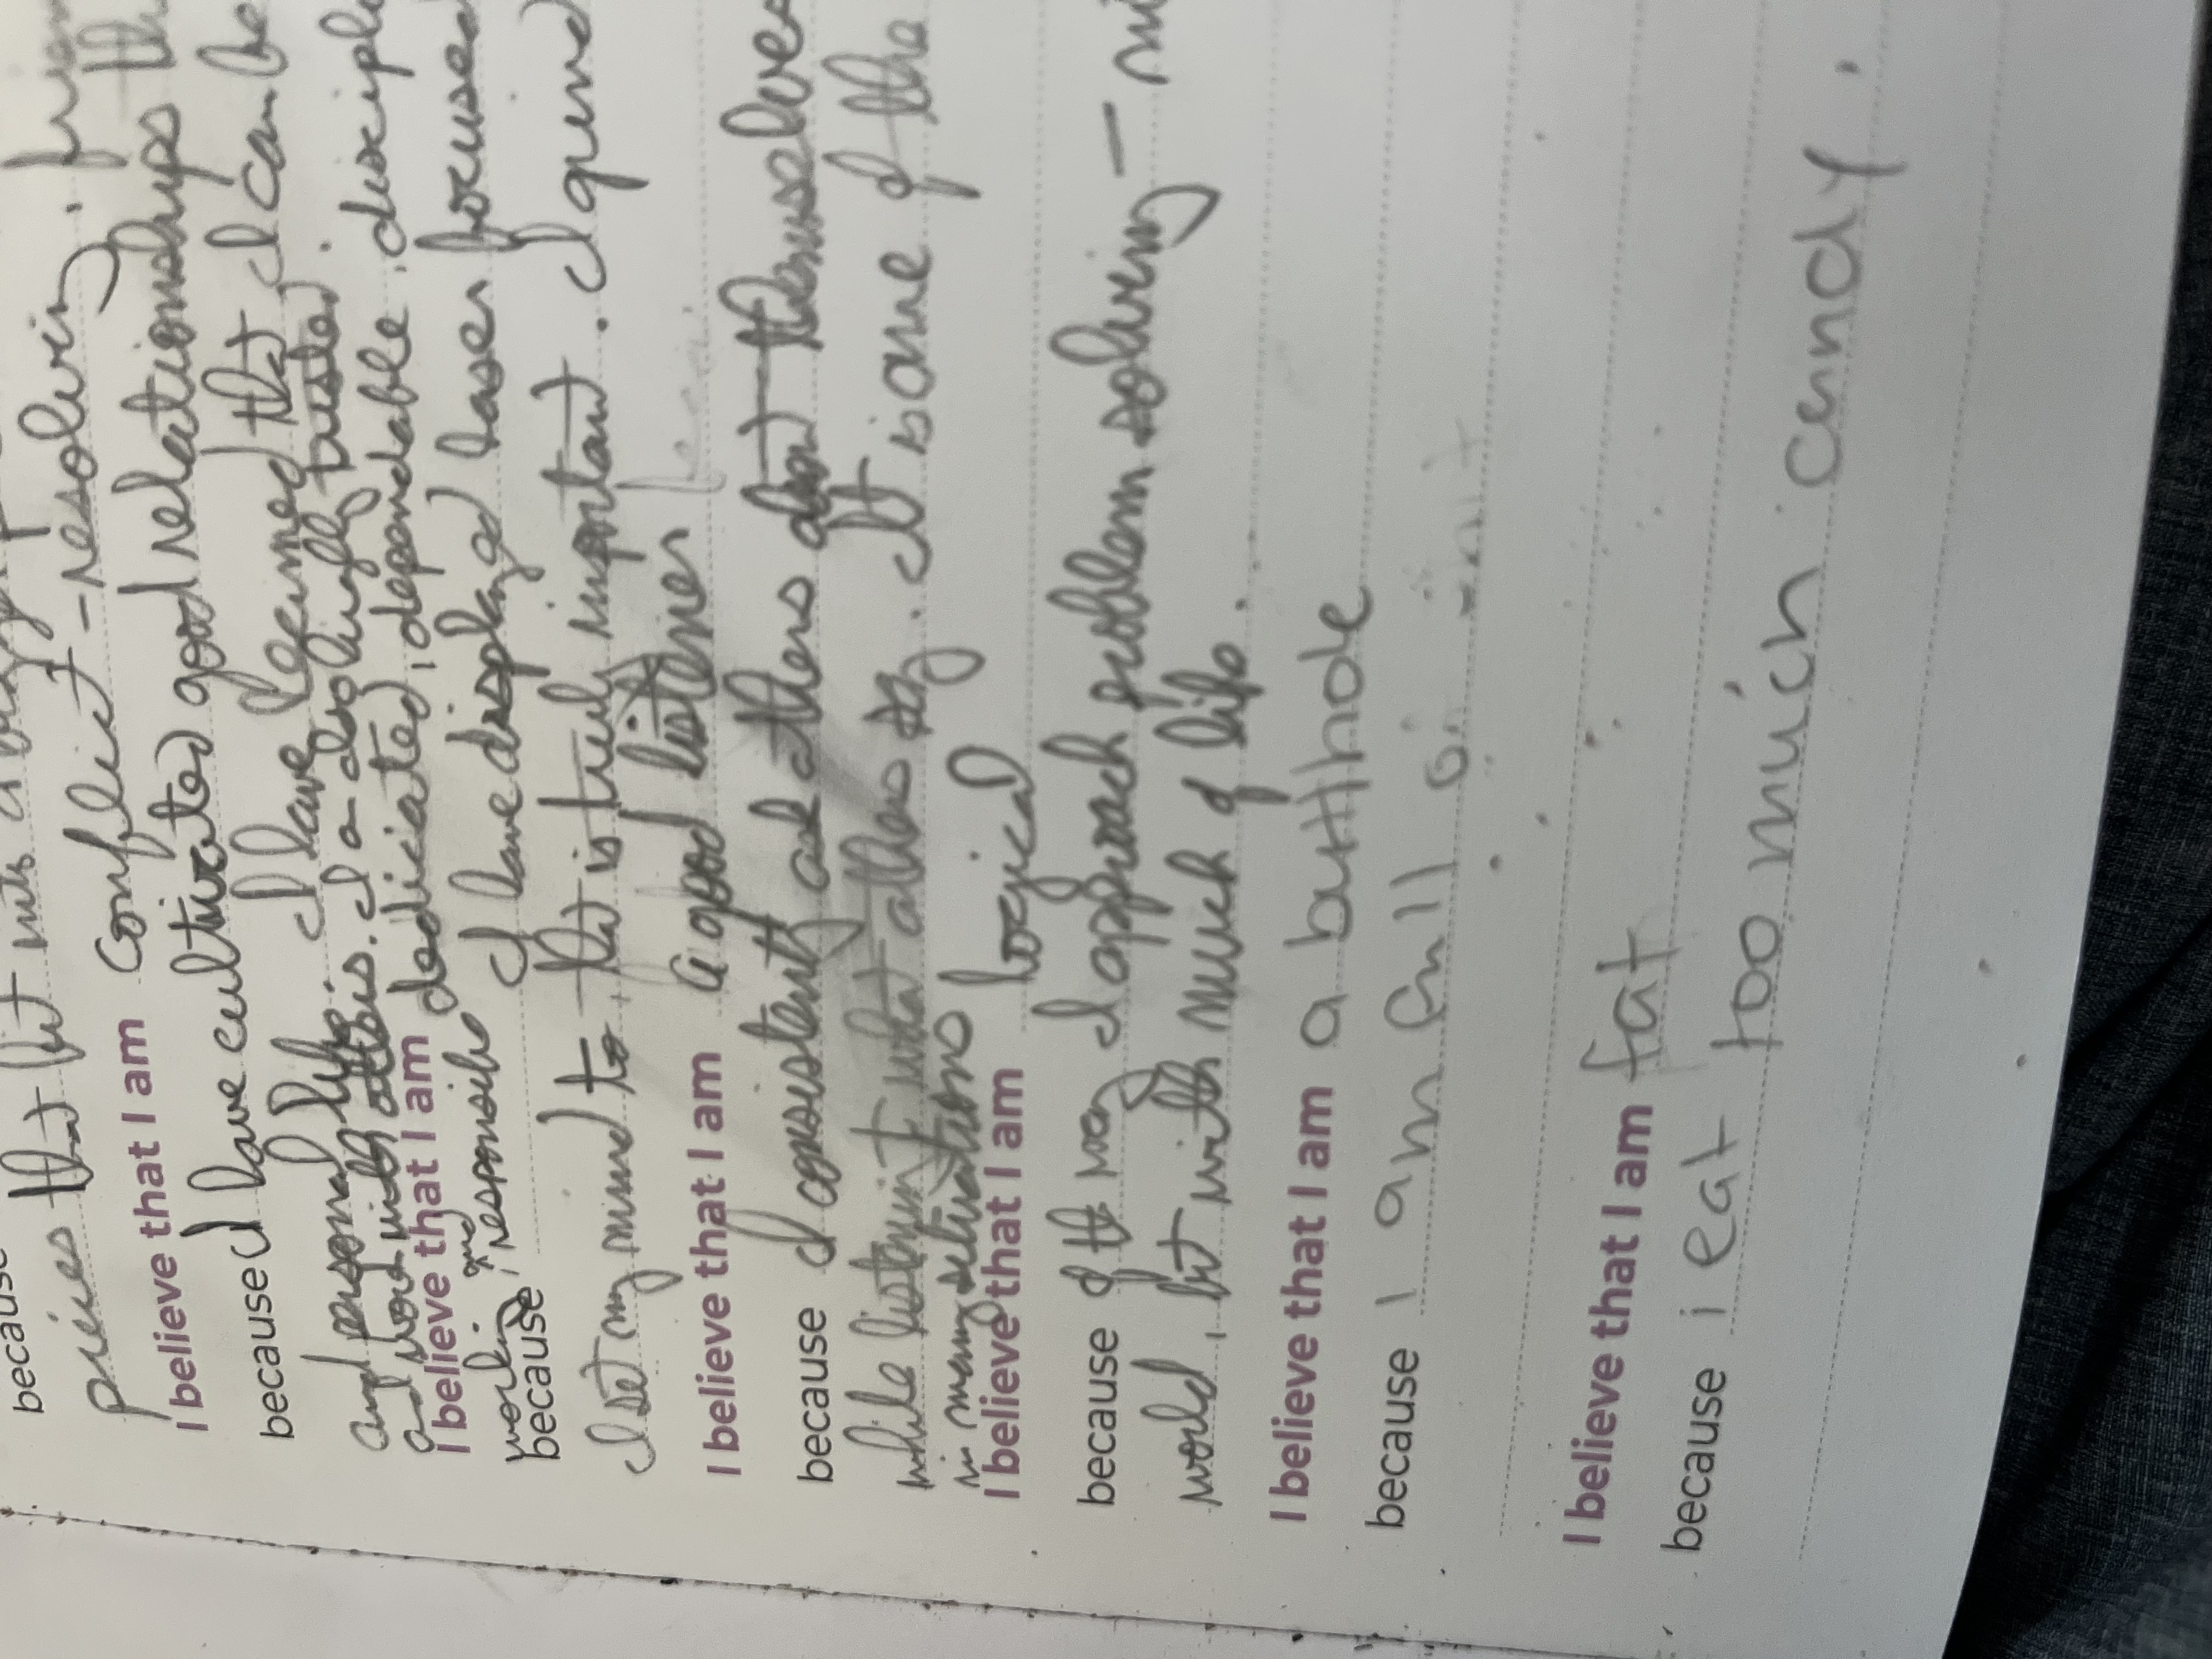 because
pieces that fit
I believe that I am conflict-resolving.
I have cultivated good relationships
because I have learned that I can be
and personal life.
and work with others. I absolutely
I believe that I am dedicated, dependable, disciple
working, and responsible
because I have displayed laser focused
I set my mind to that is truly important. I
I believe that I am a good listener
because I consistently ask others themselves
while what others say. It is one of the
in many situations
I believe that I am logical
because of the way I approach problem solving -
world, but with much of life.
I believe that I am a butthode
because I am full
I believe that I am fat
because i eat too much candy.